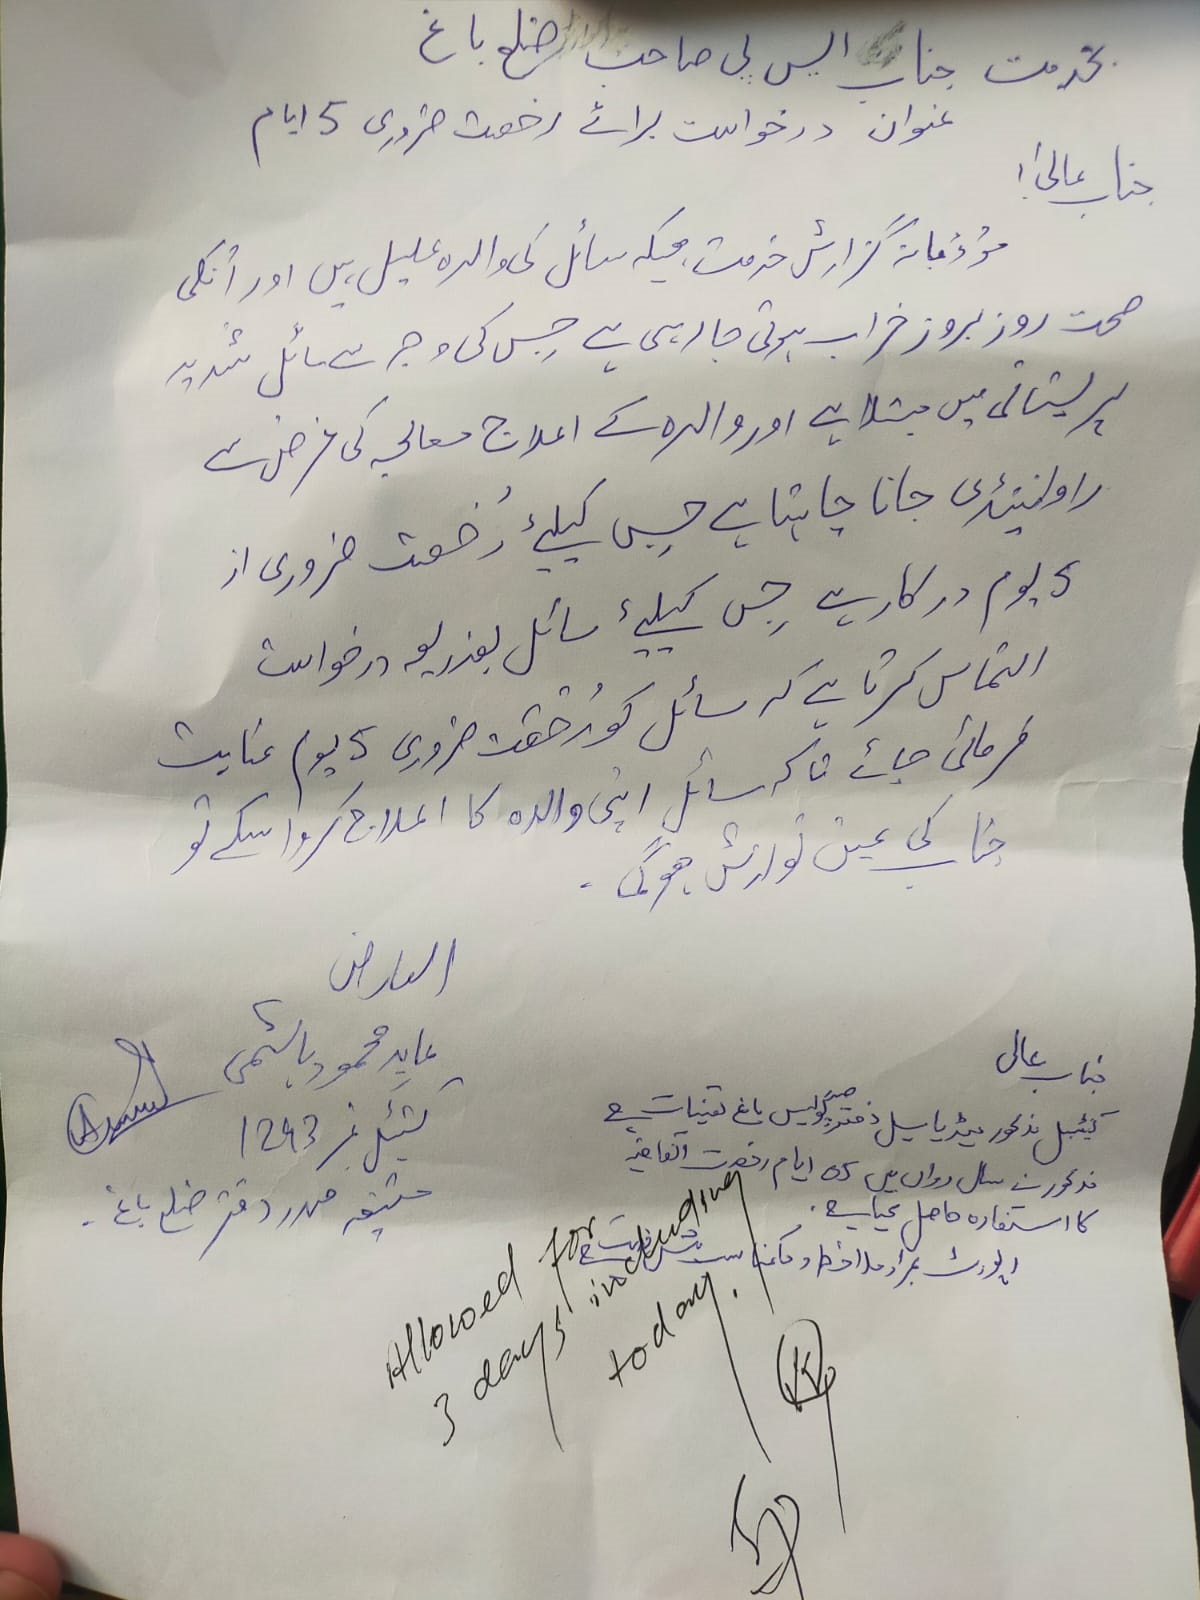 بخدمت جناب ایس پی صاحب ضلع باغ
عنوان درخواست برائے رخصت ضروری 5 ایام
جناب عالیٰ!
مؤدبانہ گزارش خدمت ہیکہ سائل کی والدہ علیل ہیں اور اُنکی
صحت روز بروز خراب ہوتی جا رہی ہے جِس کی وجہ سے سائل شدید
پریشانی میں مبتلا ہے اور والدہ کے اعلاج معالجہ کی غرض سے
راولپنڈی جانا چاہتا ہے جِس کیلئے رُخصت ضروری از
5 یوم درکار ہے جِس کیلئے سائل بذریعہ درخواست
التماس کرتا ہے کہ سائل کو رُخصت ضروری 5 یوم عنایت
فرمائی جائے تاکہ سائل اپنی والدہ کا اعلاج کروا سکے تو
جناب کی عین نوازش ہوگی ۔
العارض
عابد محمود ہاشمی
کنسٹیبل نمبر 1243
متعینہ صدر دفتر ضلع باغ ۔
جناب عالی
کنسٹیبل مذکور میڈیا سیل دفتر پولیس باغ تعینات ہے
مذکور نے سال رواں میں 05 ایام رخصت اتفاقیہ
کا استفادہ حاصل کیا ہے ۔
رپورٹ بمراد ملاحظہ و مناسب پیش خدمت ہے
Allowed for
3 days including
today.